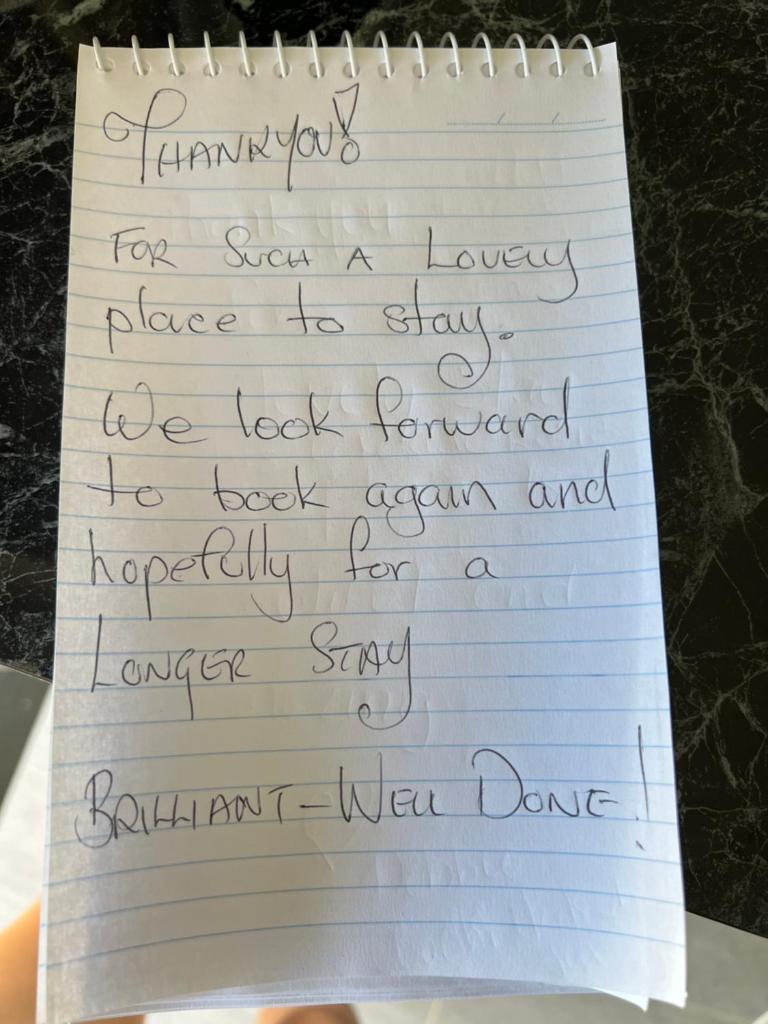 THANKYOU!
FOR SUCH A LOVELY
place to stay.
We look forward
to book again and
hopefully for a
LONGER STAY
BRILLIANT – WELL DONE!